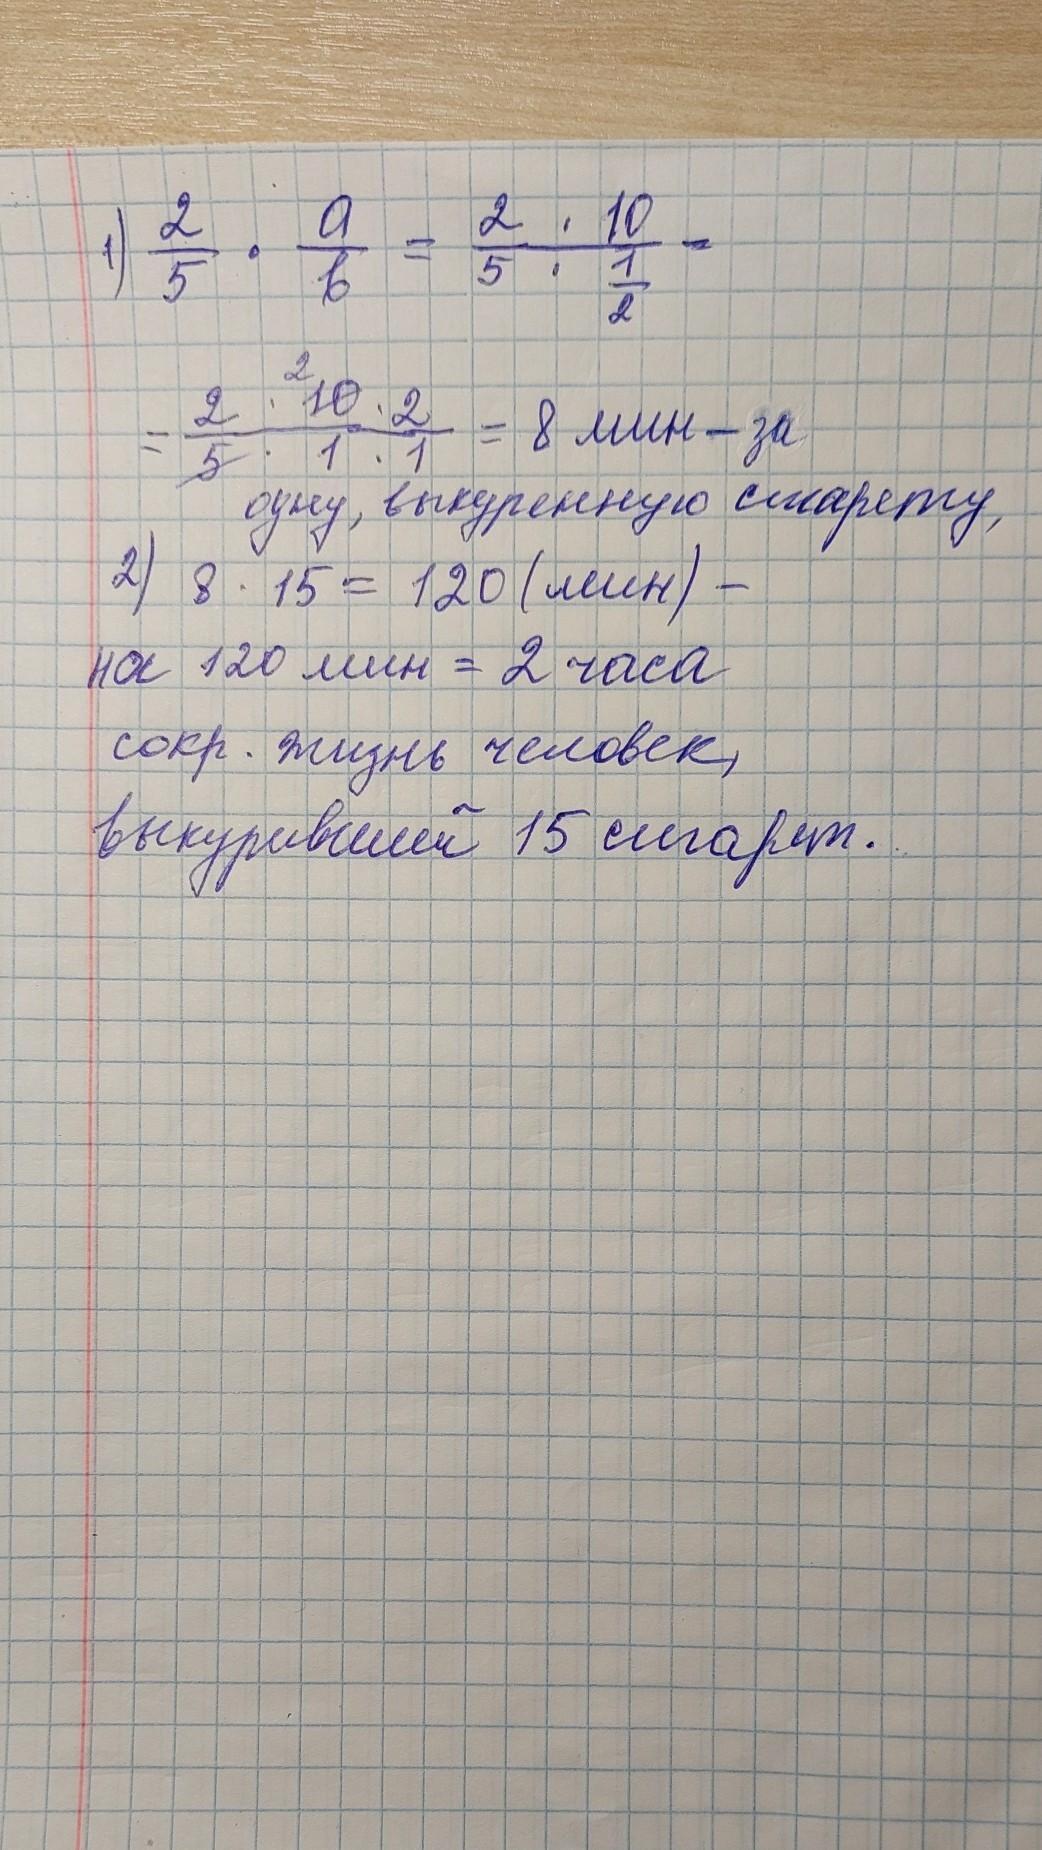 1) 2/5 · a/b = 2 · 10 / 5 · 1/2 -
= 2 · 10 · 2 / 5 · 1 · 1 = 8 мин - за
2
одну, выкуренную сигарету,
2) 8 · 15 = 120 (мин) -
на 120 мин = 2 часа
сокр. жизнь человек,
выкуривший 15 сигарет.